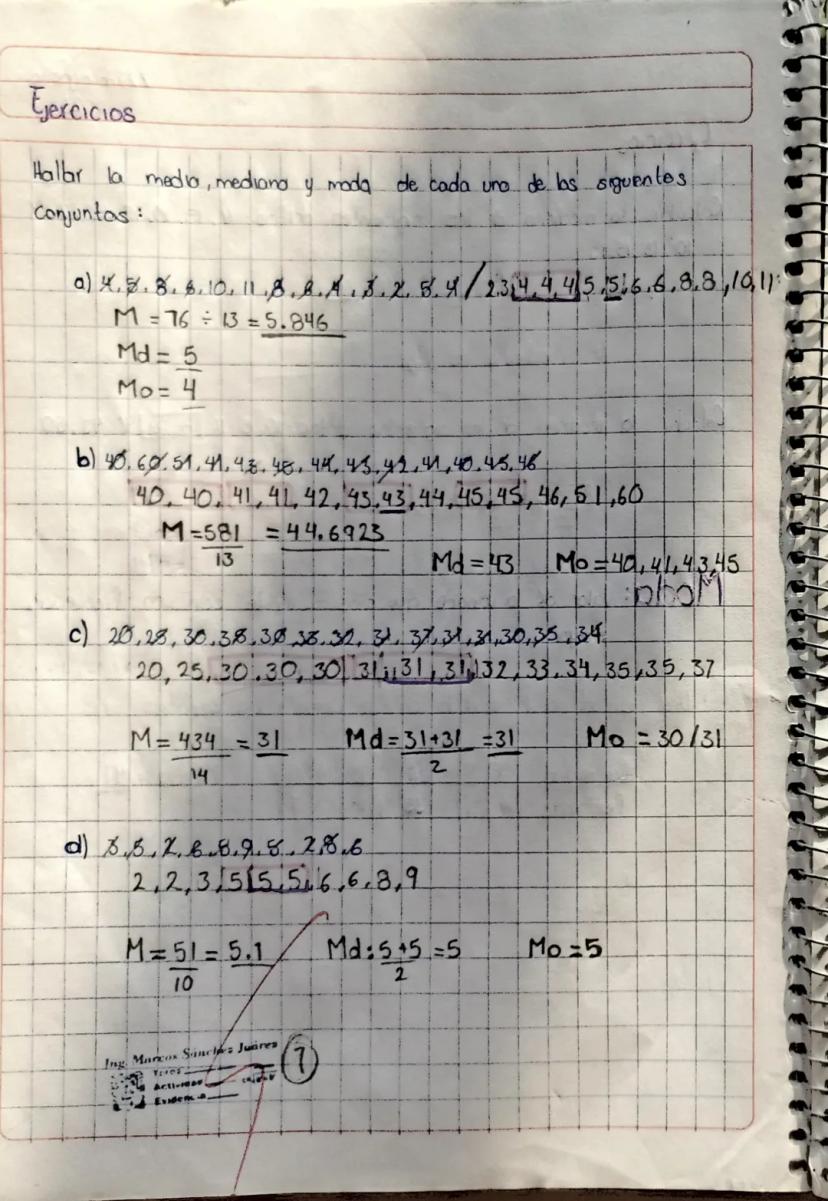 Ejercicios
Hallar la media, mediana y moda de cada uno de los siguentes
conjuntos:
a) 4, 5, 8, 6, 10, 11, 8, 6, 4, 3, 2, 5, 4 / 2 3 4, 4, 4 5, 5, 6, 6, 8, 8, 10, 11
M = 76 ÷ 13 = 5.846
Md = 5
Mo = 4
b) 40, 60, 51, 41, 43, 45, 44, 43, 42, 41, 40, 45, 46
40, 40, 41, 41, 42, 43, 43, 44, 45, 45, 46, 51, 60
M = 581/13 = 44.6923 Md = 43 Mo = 40, 41, 43, 45
c)
20, 25, 30, 30, 30, 31, 31, 31, 32, 33, 34, 35, 35, 37
M = 434/14 = 31 Md = 31+31/2 = 31 Mo = 30/31
d)
2, 2, 3, 5, 5, 5, 6, 6, 8, 9
M = 51/10 = 5.1 Md: 5+5/2 = 5 Mo = 5
Ing. Marcos Sánchez Juárez
7
Actividad
Evidencia